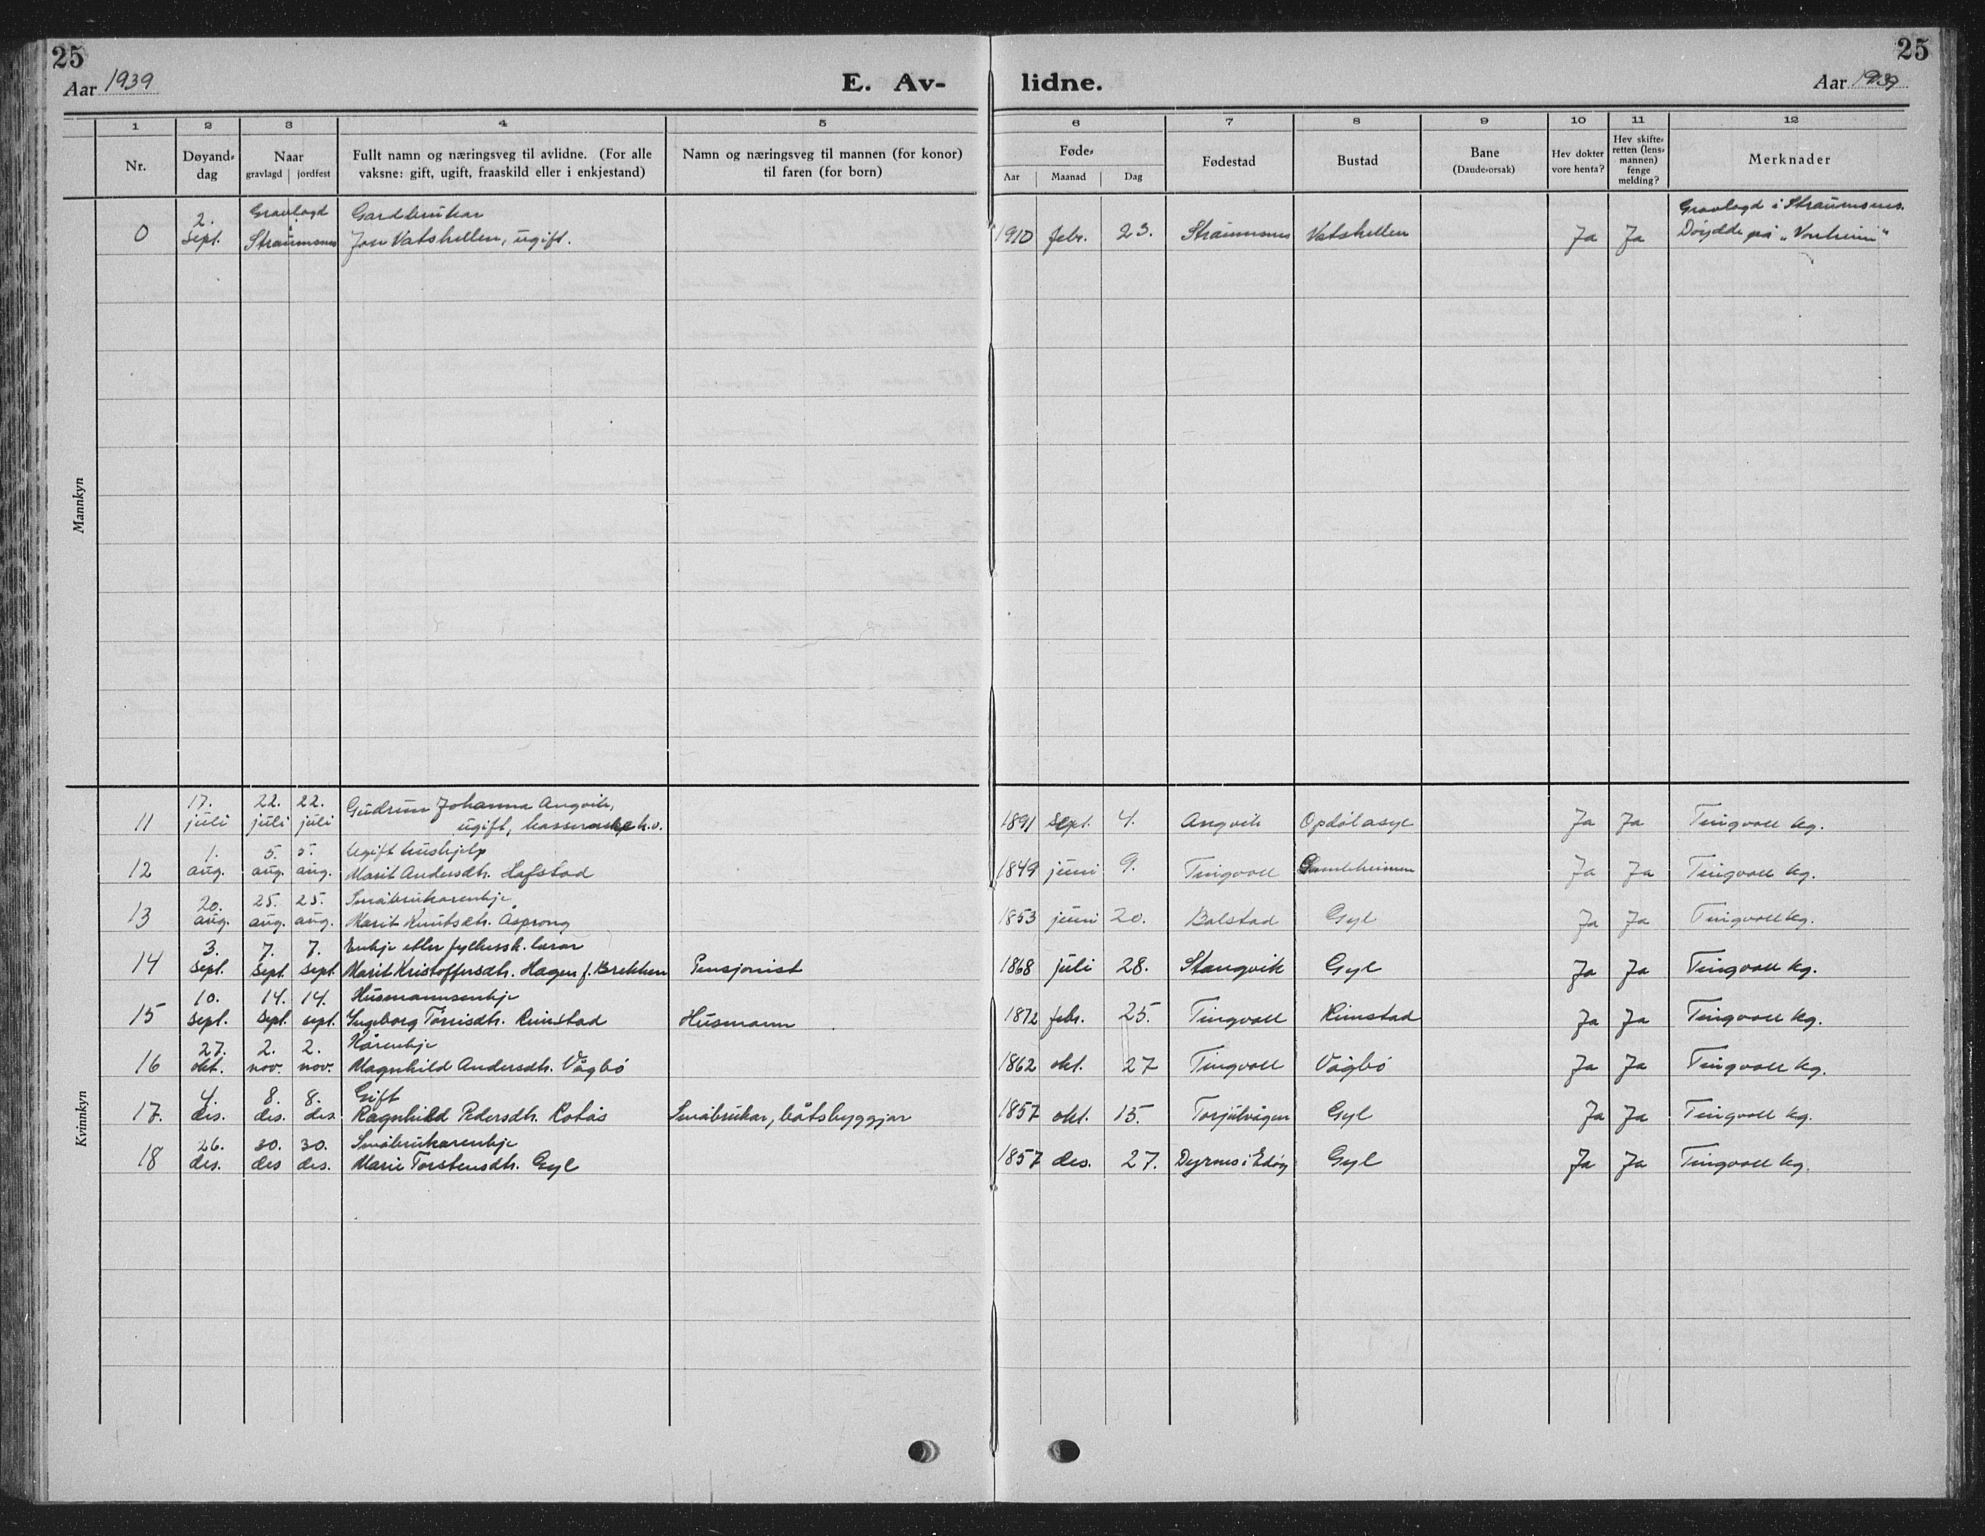 25
25
Aar 1939
E. Av-
lidne.
Aar 1939
1 2 3 4 5 6 7 8 9 10 11 12
Nr.
Døyand-
dag
Naar
gravlagd | jordfest
Fullt namn og næringsveg til avlidne. (For alle
vaksne: gift, ugift, fraaskild eller i enkjestand)
Namn og næringsveg til mannen (for konor)
til faren (for born)
Føde-
Aar Maanad Dag
Fødestad
Bustad
Bane
(Daude-orsak)
Hev dokter
vore henta?
Hev skifte-
retten (lens-
mannen)
fenge
melding?
Merknader
Mannkyn
2. Gravlagd Gardbrukar Gravlagd i Straumsnes.
0 Sept. i Straumsnes Jon Vatshellen, ugift. 1910 febr. 23. Straumsnes Vatshellen Ja Ja Døydde på "Vonheim"
Kvinnkyn
17. 22. 22. Gudrun Johanna Angvik,
11 juli juli juli ugift, 1891 sept. 4. Angvik Opdølasyl Ja Ja Tingvoll kg.
1. 5. 5. Ugift hushjelp
12 aug. aug. aug. Marit Andersdtr. Hafstad 1849 juni 9. Tingvoll Gamleheimen Ja Ja Tingvoll kg.
20. 25. 25. Småbrukarenkje
13 aug. aug. aug. Marit Knutsdtr. Åsprong 1853 juni 20. Bolstad Gyl Ja Ja Tingvoll kg.
3. 7. 7. Enkje etter fylkessk. lærar
14 sept. sept. sept. Marit Kristoffersdtr. Hagen f. Brekken Pensjonist 1868 juli 28. Stangvik Gyl Ja Ja Tingvoll kg.
10. 14. 14. Husmannsenkje
15 sept. sept. sept. Ingeborg Tørrisdtr. Rimstad Husmann 1872 febr. 25. Tingvoll Rimstad Ja Ja Tingvoll kg.
27. 2. 2. Kårenkje
16 okt. nov. nov. Magnhild Andersdtr. Vågbø 1862 okt. 27 Tingvoll Vågbø Ja Ja Tingvoll kg.
4. 8. 8. Gift
17. des. des. des Ragnhild Pedersdtr. Rotås Småbrukar, båtsbyggjar 1857 okt. 15. Torjulvågen Gyl Ja Ja Tingvoll kg.
26. 30. 30. Småbrukarenkje
18 des. des des. Marie Torstensdtr. Gyl 1857 des. 27. Dyrnes i Edøy Gyl Ja Ja Tingvoll kg.